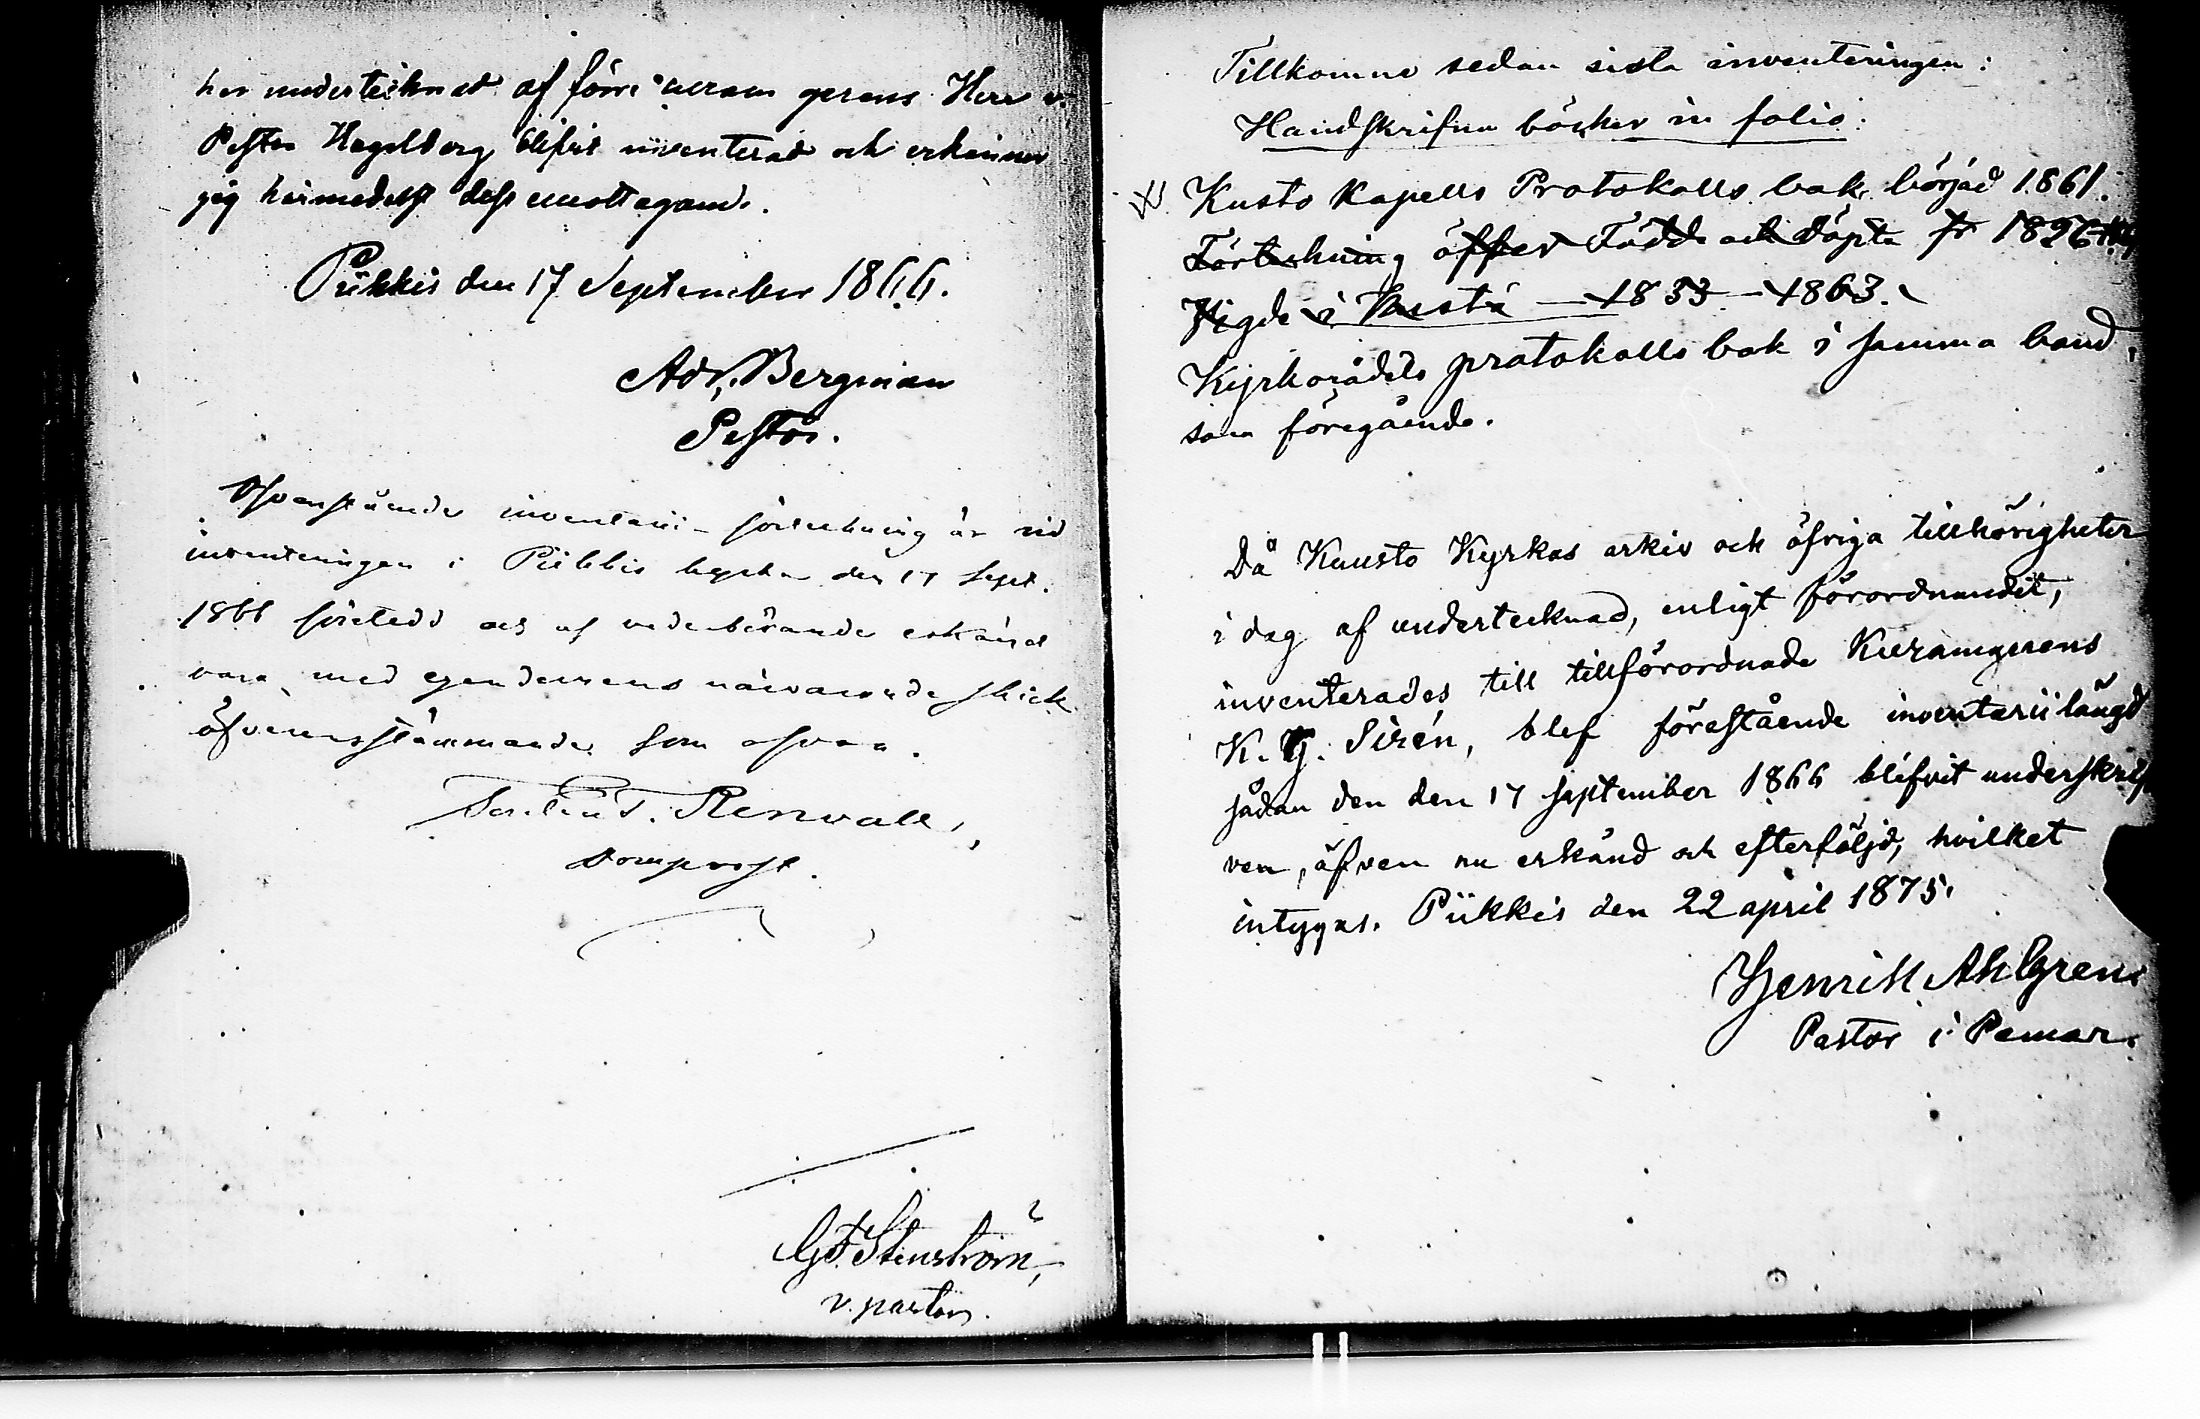 har undertecknad af förre curam gerens Herr v.
Pastor Hagelberg blifvit inventerad och erkänner
jag härmedelst dess emottagande.
Piikkis den 17 September 1866.
Ad. Bergman
Pastor.
Ofvanstående inventarii-förteckning är vid
inventeringen i Piikkis kyrka den 17 Sept.
1866 företedd och af vederbörande erkänd
vara med egendomens närvarande skick
öfverensstämmande som ofvan.
T. Renvall,
Domprost.
G.F. Stenström,
v. pastor.
Tillkomne sedan sista inventeringen:
Handskrifna böcker in folio:
Kusto Kapells Protokolls bok, börjad 1861.
Förteckning öffver Födde och döpta fr 1826
Vigde i Kustö — 1833 — 1863.
Kyrkorådets protokolls bok i samma band,
som föregående.
Då Kuusto Kyrkas arkiv och öfriga tillhörigheter
i dag af undertecknad, enligt förordnandet,
inventerades till tillförordnade Kuramgerens
K. G. Sirén, blef förestående inventarii längd
sådan den den 17 september 1866 blifvit underskrif
ven, äfven nu erkänd och efterföljd, hvilket
intygas. Piikkis den 22 april 1875.
Henrik Ahlgren
Pastor i Pemar.